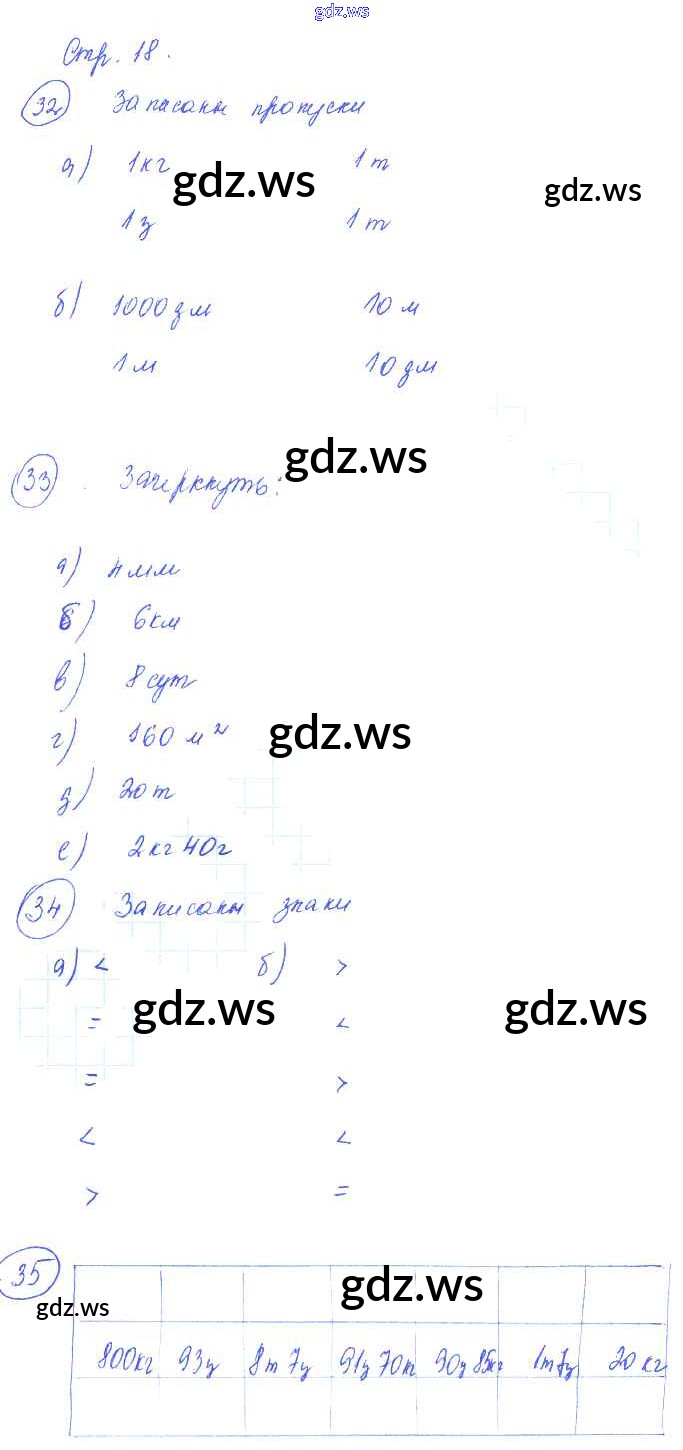 gdz.ws
Стр. 18.
32 Записаны пропуски
а) 1кг 1т
gdz.ws gdz.ws
1ц 1т
б) 1000дм 10м
1м 10дм
gdz.ws
33. Зачеркнуть:
а) 4мм
б) 6км
в) 8сут
г) 160м²
gdz.ws
д) 20т
е) 2кг40г
34 Записаны знаки
а) < б) >
gdz.ws gdz.ws
= <
= >
< <
> =
35
gdz.ws
gdz.ws
800кг 93ц 8т7ц 90ц85кг 1т7ц 20кг